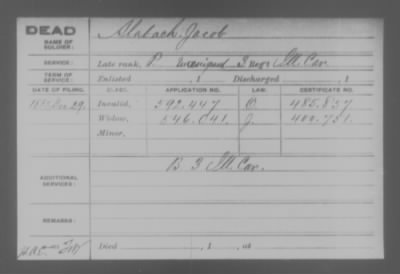 DEAD
NAME OF SOLDIER: Alabach, Jacob
SERVICE: Late rank, P Unassigned 3 Reg't Ill. Cav.
TERM OF SERVICE: Enlisted , 1 Discharged , 1
DATE OF FILING. CLASS. APPLICATION NO. LAW. CERTIFICATE NO.
Invalid, 592.447 O. 485.837
Widow, 546.041 J. 400.751
Minor,
ADDITIONAL SERVICES: B 3 Ill. Cav.
REMARKS:
Died , 1 , at